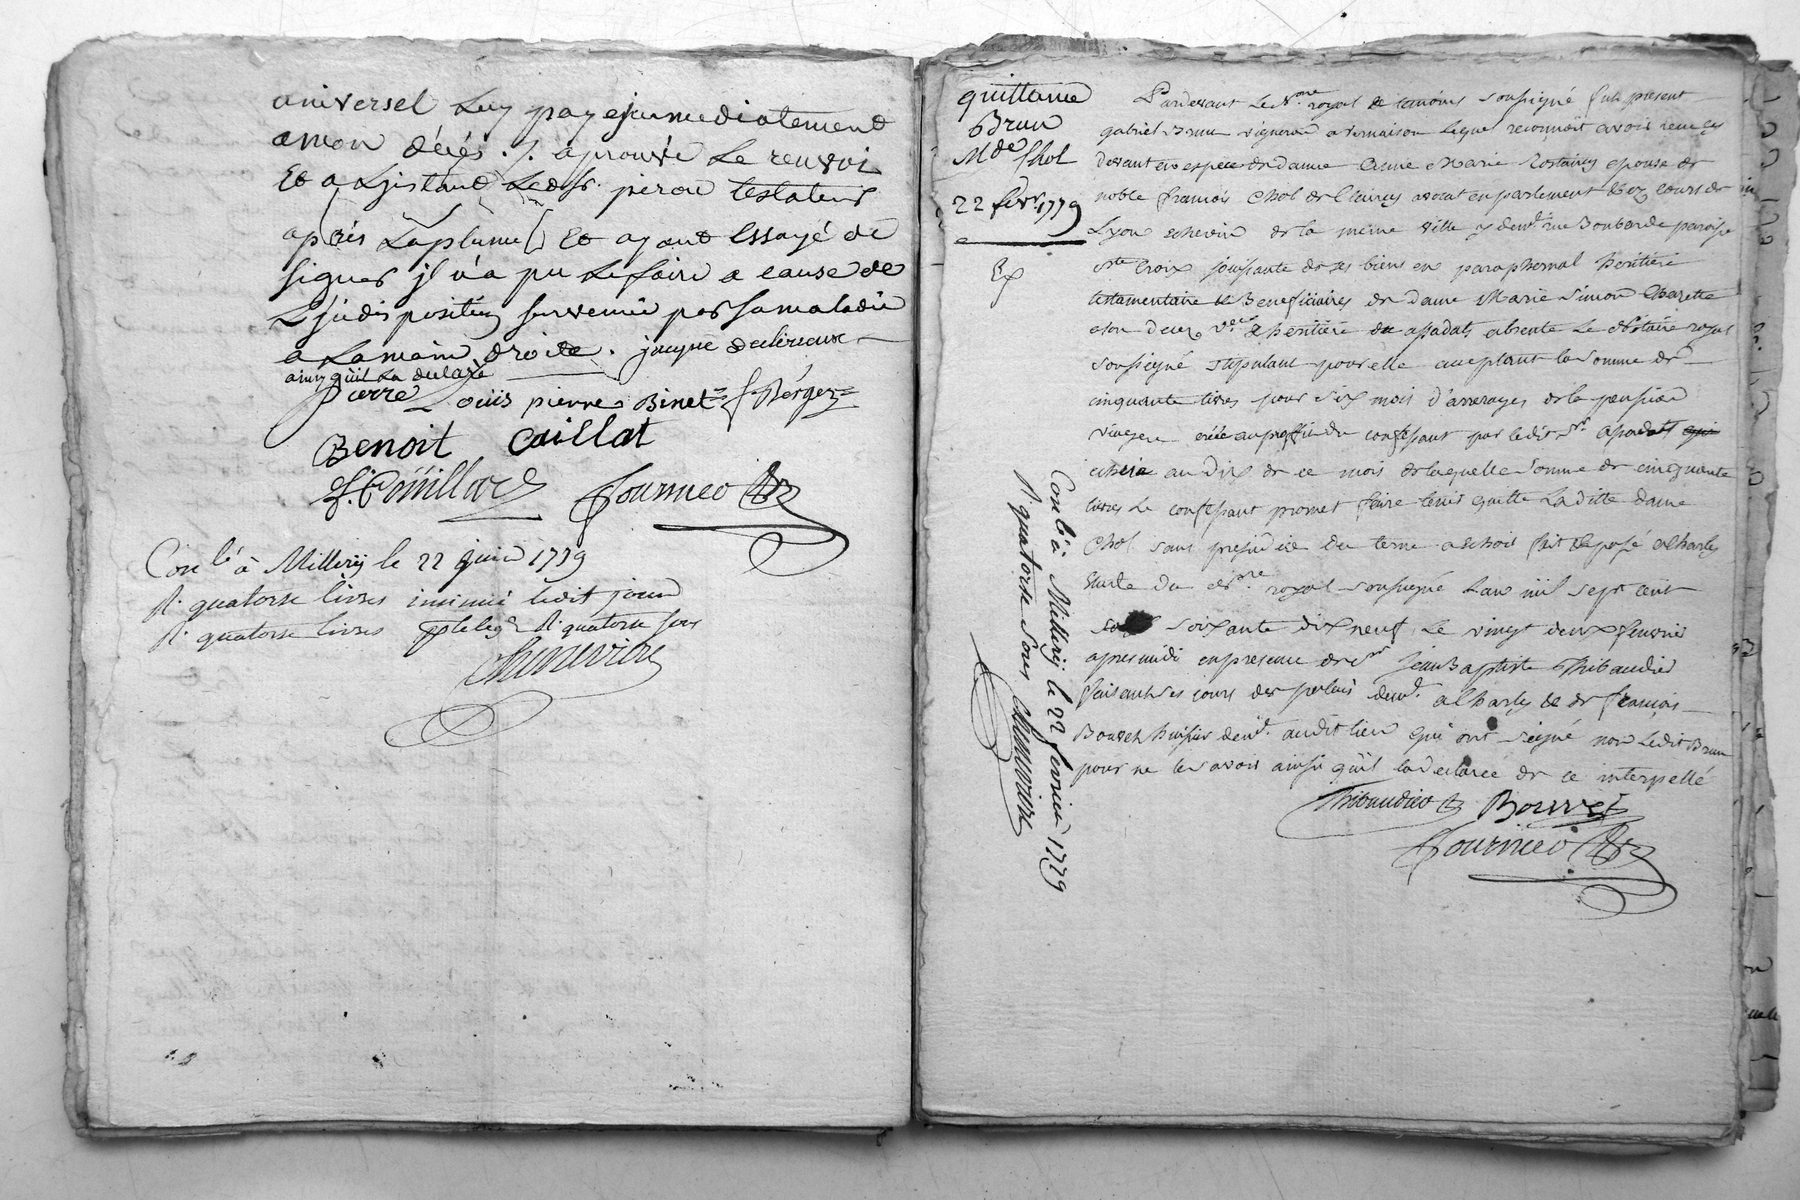 universel luy paye jmmediatement
amon décés . /. aprouvé le renvoi
Et a Ljnstant Ledt Sr. perou testateur
apres La plume Et ayant Essayé de
signer jl n'a pu Le faire a cause de
L'jndisposition survenue par sa maladie
a La main droite . jacque
ainsy quil La declaré
pierre Louis pierre Binet f Berger
Benoit Caillat
Fournier
Conlé à Millery le 22 juin 1779
R. quatorse livres insinué ledit jour
R. quatorse livres R. quatorse sous
Chenevier
quittance
Brun
Mde Chol
22 fevr. 1779
Ex
Pardevant Le Nre. royal et temoins soussigné fut present
gabriel Brun vigneron a vernaison Lequel reconnoit avoir receu cy
devant en espece de dame Anne Marie epouse de
noble françois Chol de Clairey avocat en parlement Et ez cours de
Lyon echevin de la meme ville y demt. rüe Bombarde paroisse
ste Croix jouissante de ses biens en paraphernal heritiere
testamentaire Beneficiaire de dame Marie Simon
a son deces ve. & heritiere du absente Le Notaire royal
soussigné stipulant pour elle acceptant la somme de
cinquante livres pour six mois d'arrerages de la pension
viagere créée au proffit du confessant par ledit Sr.
echeu au dix de ce mois de laquelle somme de cinquante
livres Le confessant promet faire tenir quitte La ditte dame
Chol sans prejudice du terme a echoir fait & passé a Charly
Etude du Nre. royal soussigné L'an mil sept cent
soixante dix neuf Le vingt deux fevrier
apres midi en presence de Sr. jean Baptiste Thibaudier
faisant ses cours de demt. a Charly & de Sr françois
Bouvet huissier demt. audit lieu qui ont signé non Ledit Brun
pour ne le savoir ainsi qu'il la declaré de ce interpellé
Thibaudier Bouvet
Fournier
Conlé à Millery le 22 fevrier 1779
R. quatorse sous Chenevier